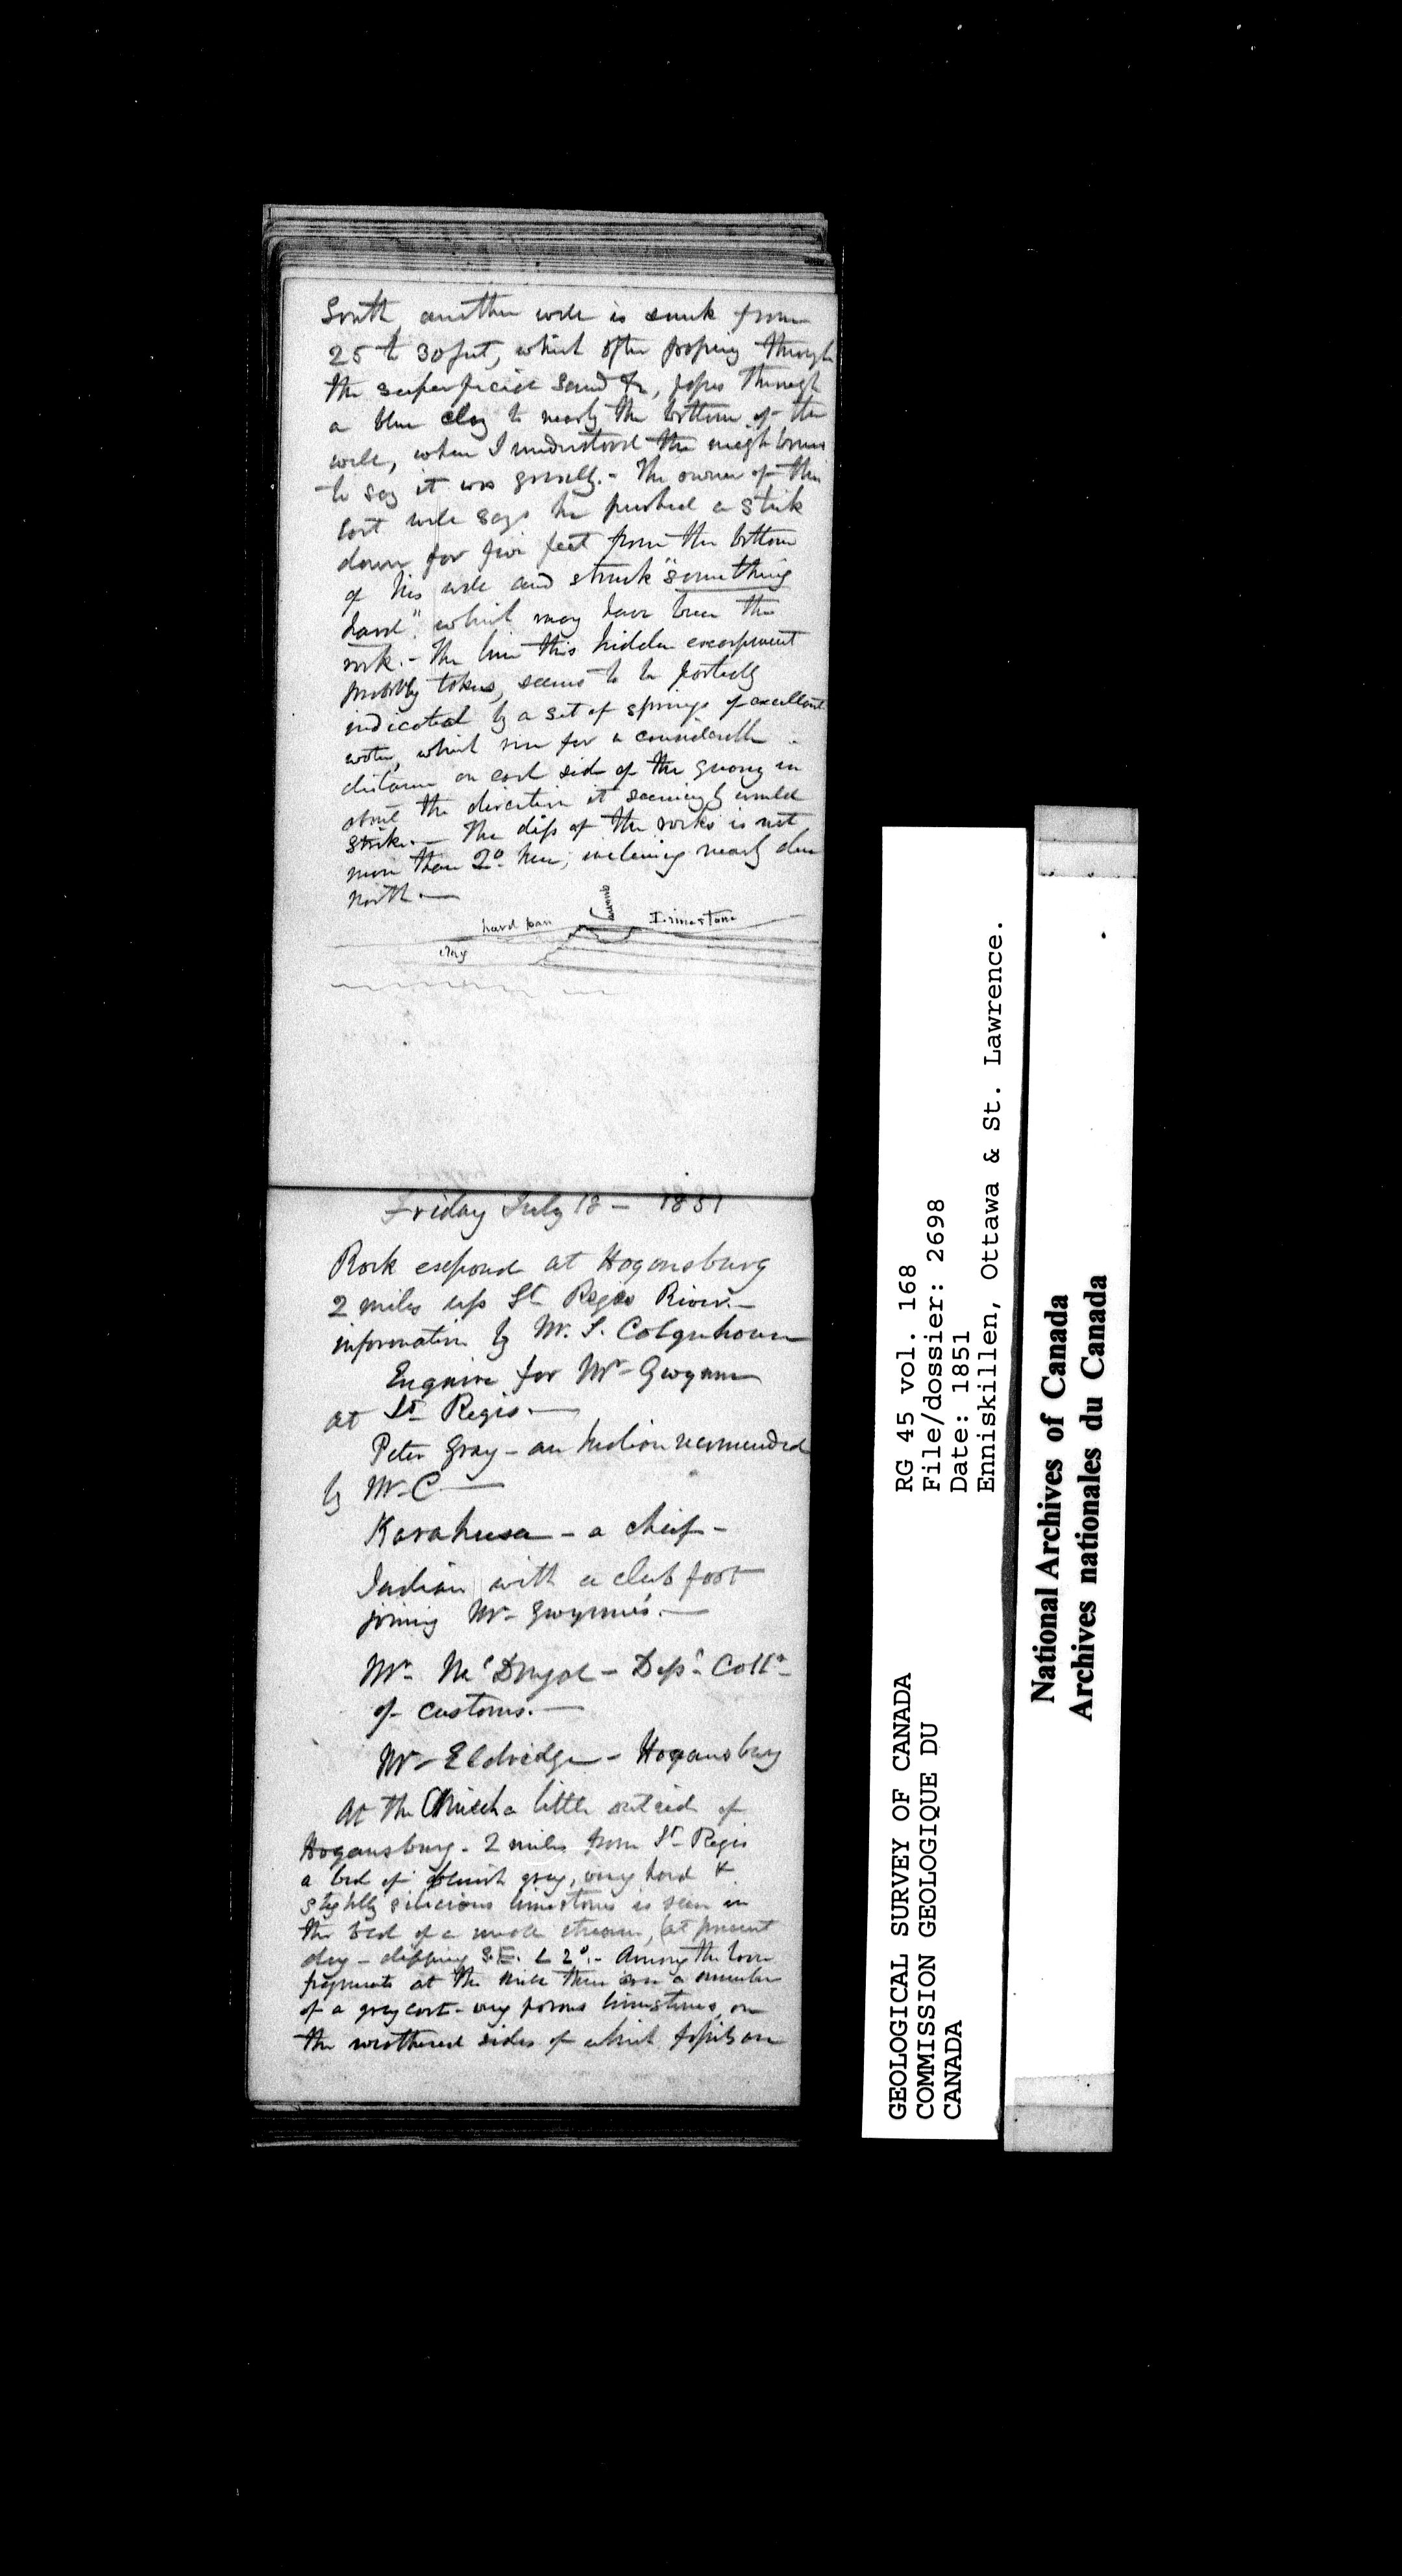 South another well is sunk from
25 to 30 feet, which after passing through
the superficial sand &c, passes through
a blue clay to nearly the bottom of the
well, when I understood the neighbours
to say it was gravelly. - The owner of this
last well says he pushed a stick
down for five feet from the bottom
of his well and struck "something
hard", which may have been the
rock. - The line this hidden escarpment
probably takes, seems to be partially
indicated by a set of springs of excellent
water, which run for a considerable
distance on each side of the quarry in
about the direction it seemingly would
strike. - The dip of the rocks is not
more than 2° here, inclining nearly due
north. -
quarry
hard pan
Limestone
clay
Friday July 18 - 1851
Rock exposed at Hogansburg
2 miles up St Regis River. -
information by Mr. S. Colquhoun
Enquire for Mr Gwynne
at St Regis. -
Peter Gray - an Indian recomended
by Mr C -
Karahusa - a chief -
Indian with a club foot
joining Mr Gwynne's. -
Mr - Dep. Collr
of customs. -
Mr Eldridge - Hogansburg
At the a little outside of
Hogansburg - 2 miles from St Regis
a bed of bluish gray, very hard &
slightly silicious limestone is seen in
the bed of a small stream, (at present
dry - dipping S.E. ∠ 2°. - Among the loose
fragments at the mill there are a number
of a grey cast - very porous limestones, on
the weathered sides of which fossils are
GEOLOGICAL SURVEY OF CANADA
COMMISSION GEOLOGIQUE DU
CANADA
RG 45 vol. 168
File/dossier: 2698
Date: 1851
Enniskillen, Ottawa & St. Lawrence.
National Archives of Canada
Archives nationales du Canada